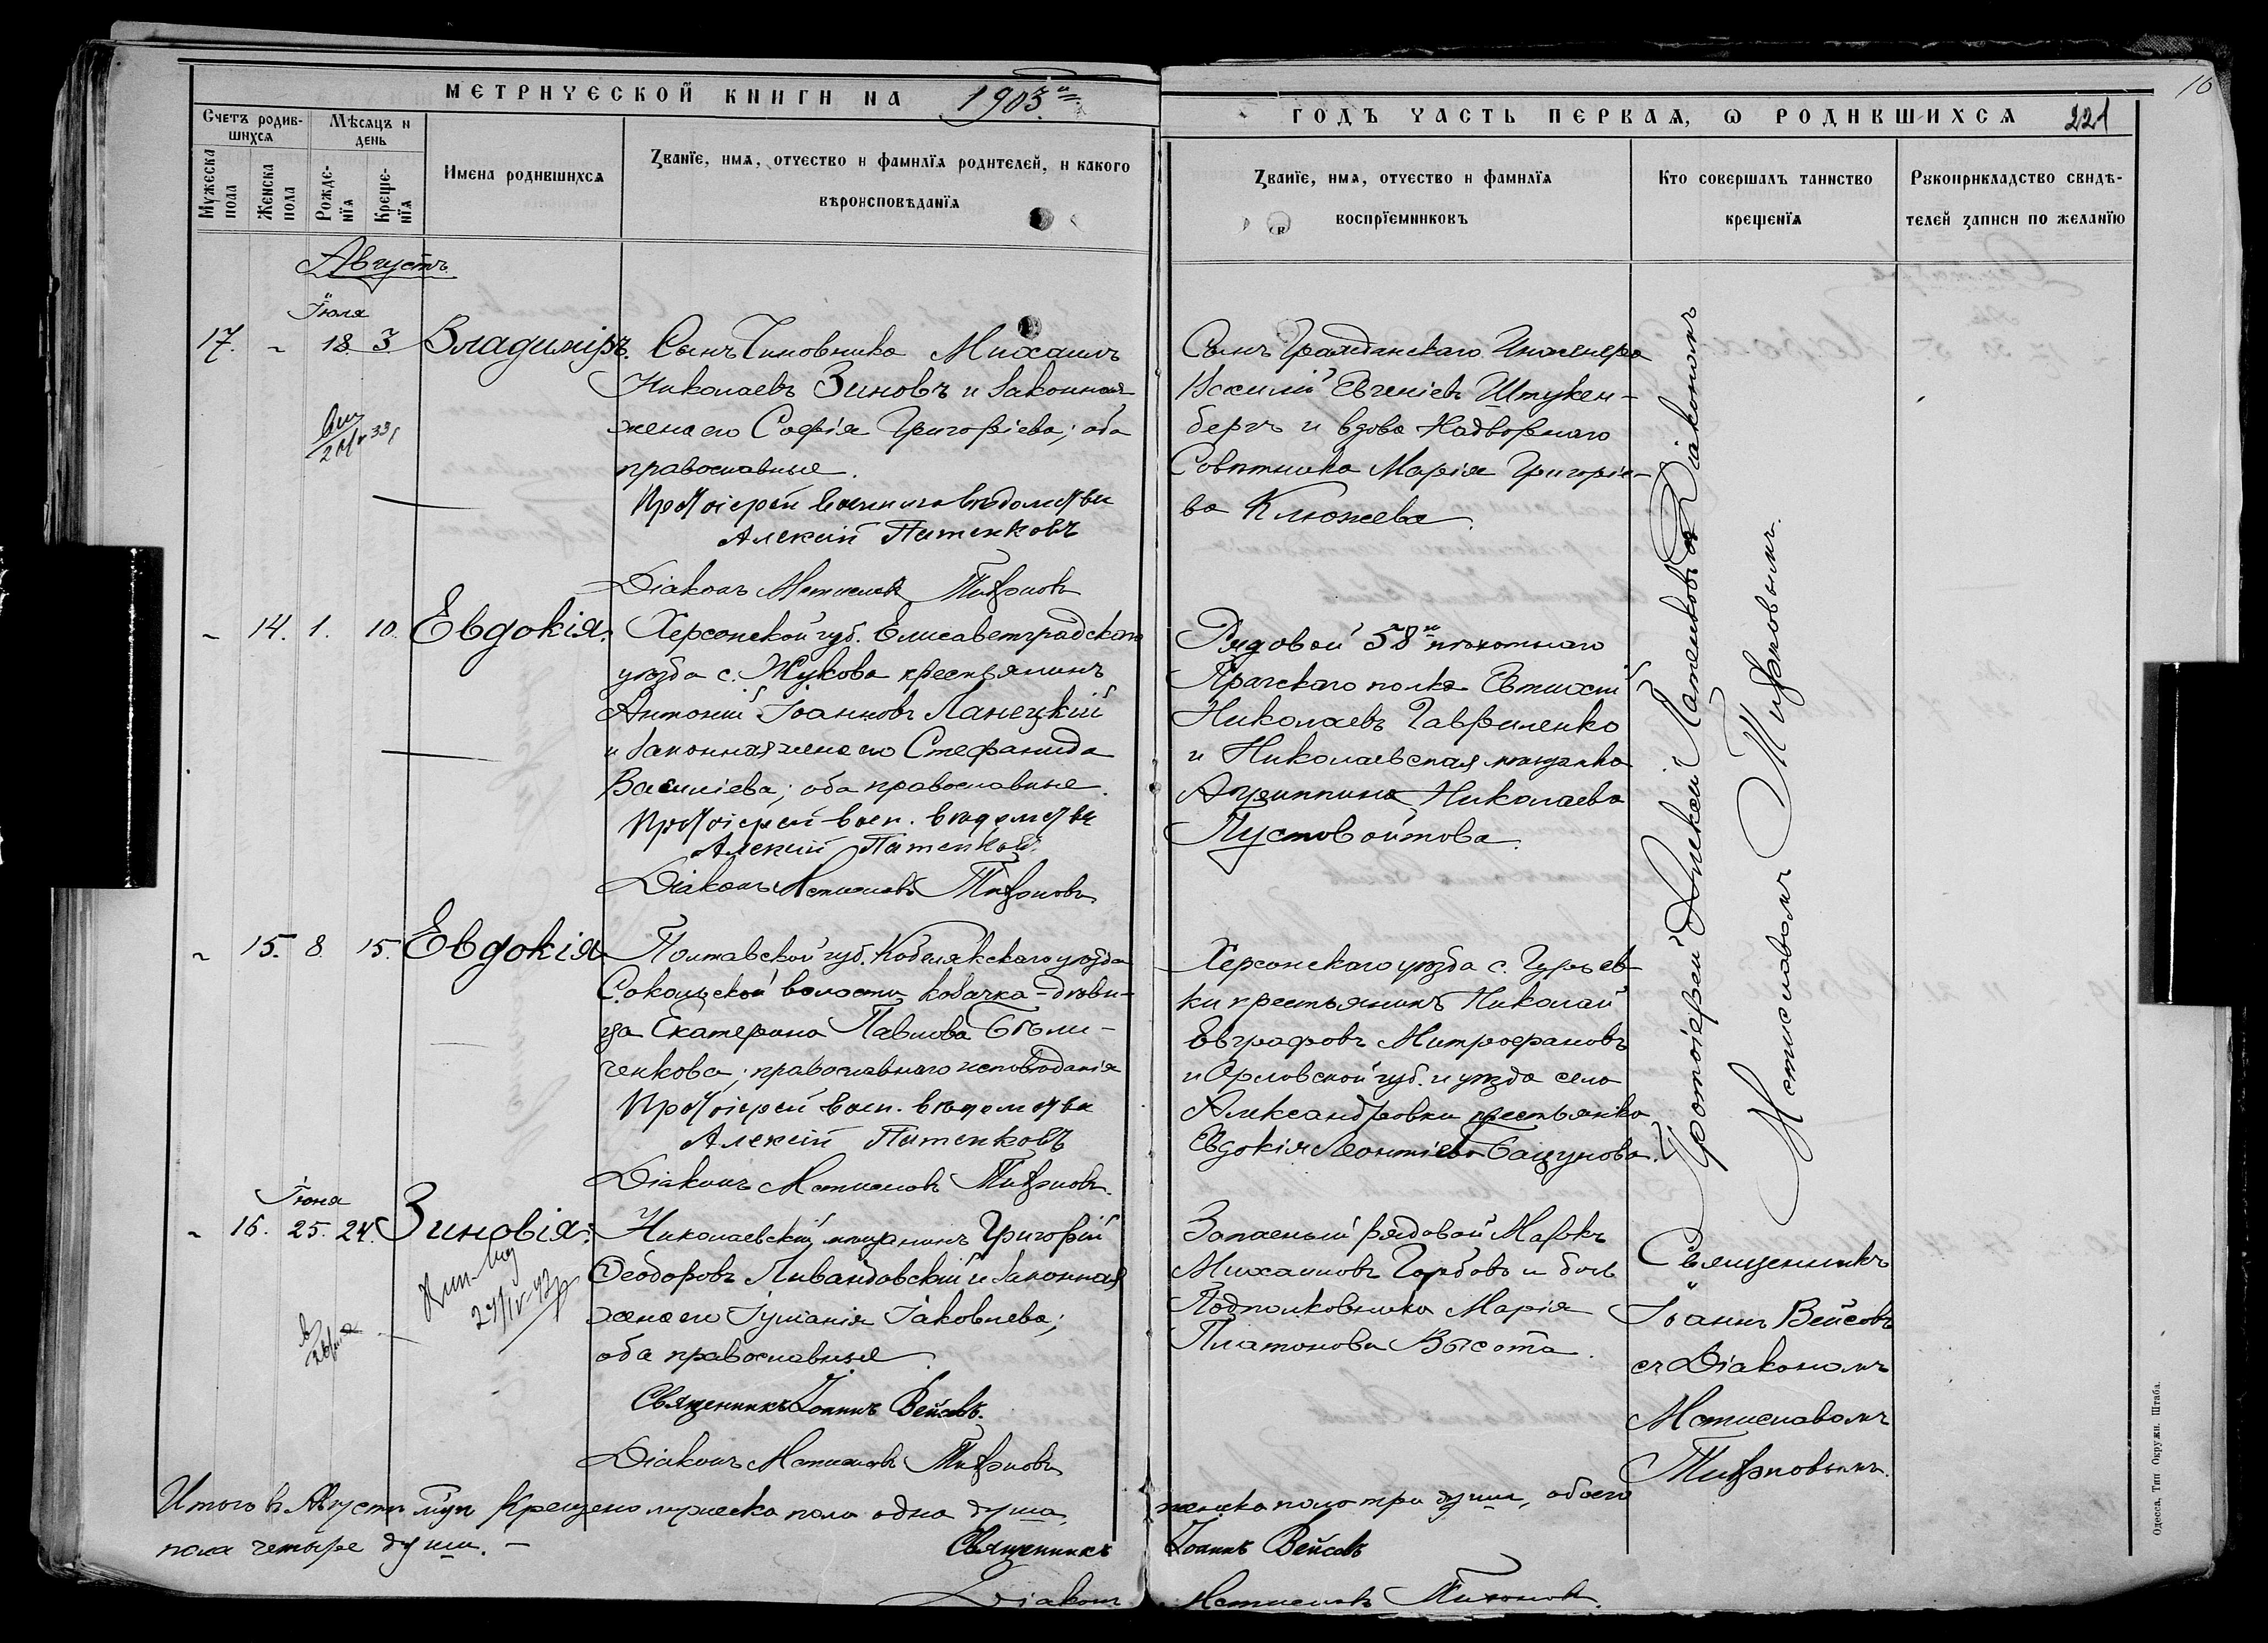 МЕТРИЧЕСКОЙ КНИГИ НА 1903й
Счетъ родив-
шихся
Мѣсяцъ и
день
Мужеска
пола
Женска
пола
Рожде-
нія
Креще-
нія
Имена родившихся
Званіе, имя, отчество и фамилія родителей, и какого
вѣроисповѣданія
Августъ
Іюля
17. " 18. 3. Владиміръ.
Сынъ Чиновника Михаилъ
Николаевъ Зиновъ и законная
жена его Софія Григоріева; оба
православные.
Протоіерей военнаго вѣдомства
Алексій Патенковъ
Діаконъ Мстиславъ Тихоновъ
" 14. 1. 10. Евдокія.
Херсонской губ. Елисаветградскаго
уѣзда с. Жукова крестьянинъ
Антоній Іоанновъ Ланецкій
и законная жена его Стефанида
Василіева; оба православные.
Протоіерей воен. вѣдомства
Алексій Патенковъ
Діаконъ Мстиславъ Тихоновъ
" 15. 8. 15. Евдокія
Полтавской губ. Кобелякскаго уѣзда
Сокольской волости козачка-дѣви-
ца Екатерина Павлова
ченкова; православнаго исповѣданія
Протоіерей воен. вѣдомства
Алексій Патенковъ
Діаконъ Мстиславъ Тихоновъ.
Іюня
" 16. 25. 24. Зиновія.
Николаевскій мѣщанинъ Григорій
Ѳеодоровъ Ливандовскій и законная
жена его Іуліанія Іаковлева;
оба православные.
Священникъ Іоаннъ Вейсовъ.
Діаконъ Мстиславъ Тихоновъ
Итого въ Августѣ м-цѣ крещено мужеска пола одна душа,
пола четыре души. —
Священникъ
Діаконъ
16
ГОДЪ ЧАСТЬ ПЕРВАЯ, Ѡ РОДИВШИХСЯ 221
Званіе, имя, отчество и фамилія
воспріемниковъ
Кто совершалъ таинство
крещенія
Рукоприкладство свидѣ-
телей записи по желанію
Сынъ Гражданскаго Инженера
Василій Евгеніевъ Штукен-
бергъ и вдова Надворнаго
Совѣтника Марія Григоріе-
ва Клюжева.
Рядовой 58го пѣхотнаго
Прагскаго полка Евтихій
Николаевъ Гавриленко
и Николаевская мѣщанка
Агриппина Николаева
Пустовойтова.
Херсонскаго уѣзда с. Гурьев-
ки крестьянинъ Николай
Евграфовъ Митрофановъ
и Орловской губ. и уѣзда села
Александровки крестьянка
Евдокія Леонтіева
Запасный рядовой Маркъ
Михаиловъ Горбовъ и дочь
Подполковника Марія
Платонова Высота.
Протоіерей Алексій Патенковъ съ Діакономъ
Мстиславомъ Тихоновымъ.
Священникъ
Іоаннъ Вейсовъ
съ Діакономъ
Мстиславомъ
Тихоновымъ.
женска пола три души, обоего
Іоаннъ Вейсовъ
Мстиславъ Тихоновъ.
Одесса. Тип. Окружн. Штаба.